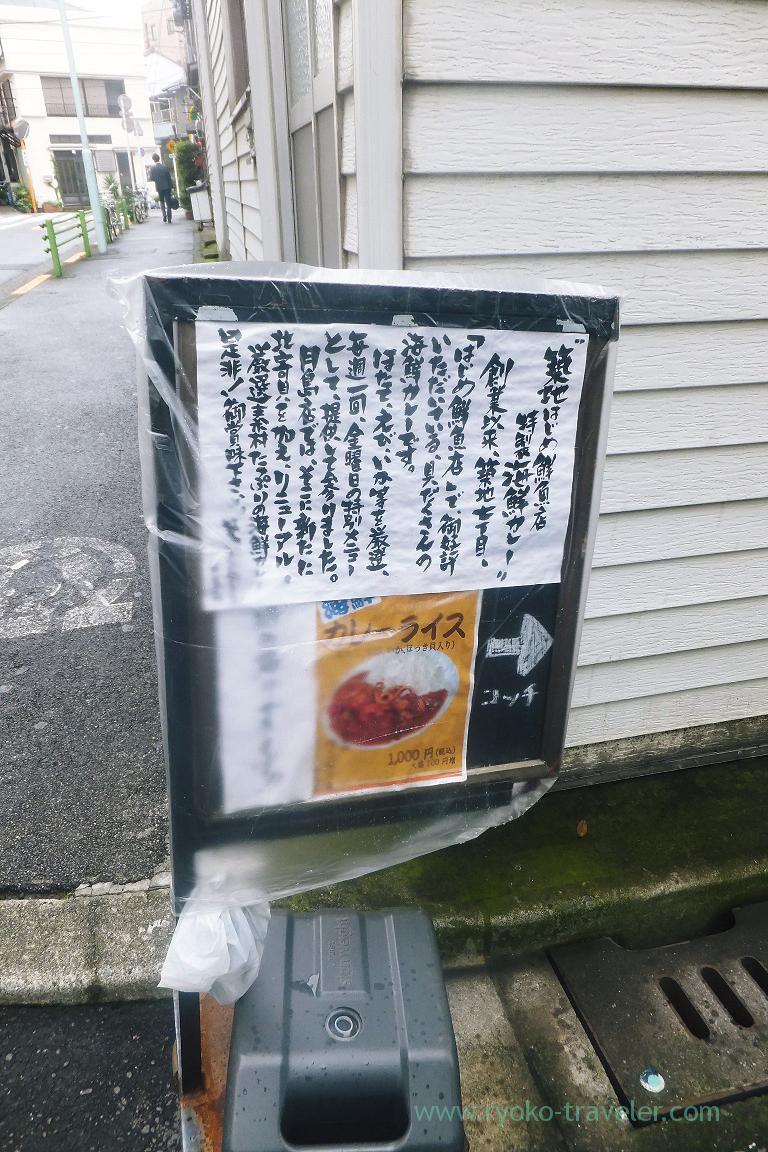 "築地はじめ鮮魚店
特製海鮮カレー"
創業以来、築地七丁目、
「はじめ鮮魚店」で御好評
いただいている、具だくさんの
海鮮カレーです。
ほたて、えび、いか等を厳選、
毎週一回、金曜日の特別メニュー
として、提供して参りました。
月島店では、そこに新たに
北寄貝、を加え、リニューアル。
厳選素材たっぷりの海鮮
是非!御賞味下さい。
海鮮
カレーライス
いか、ほっき貝入り)
1,000円(税込)
大盛100円増
コッチ
Sign Weight
www.ryoko-traveler.com